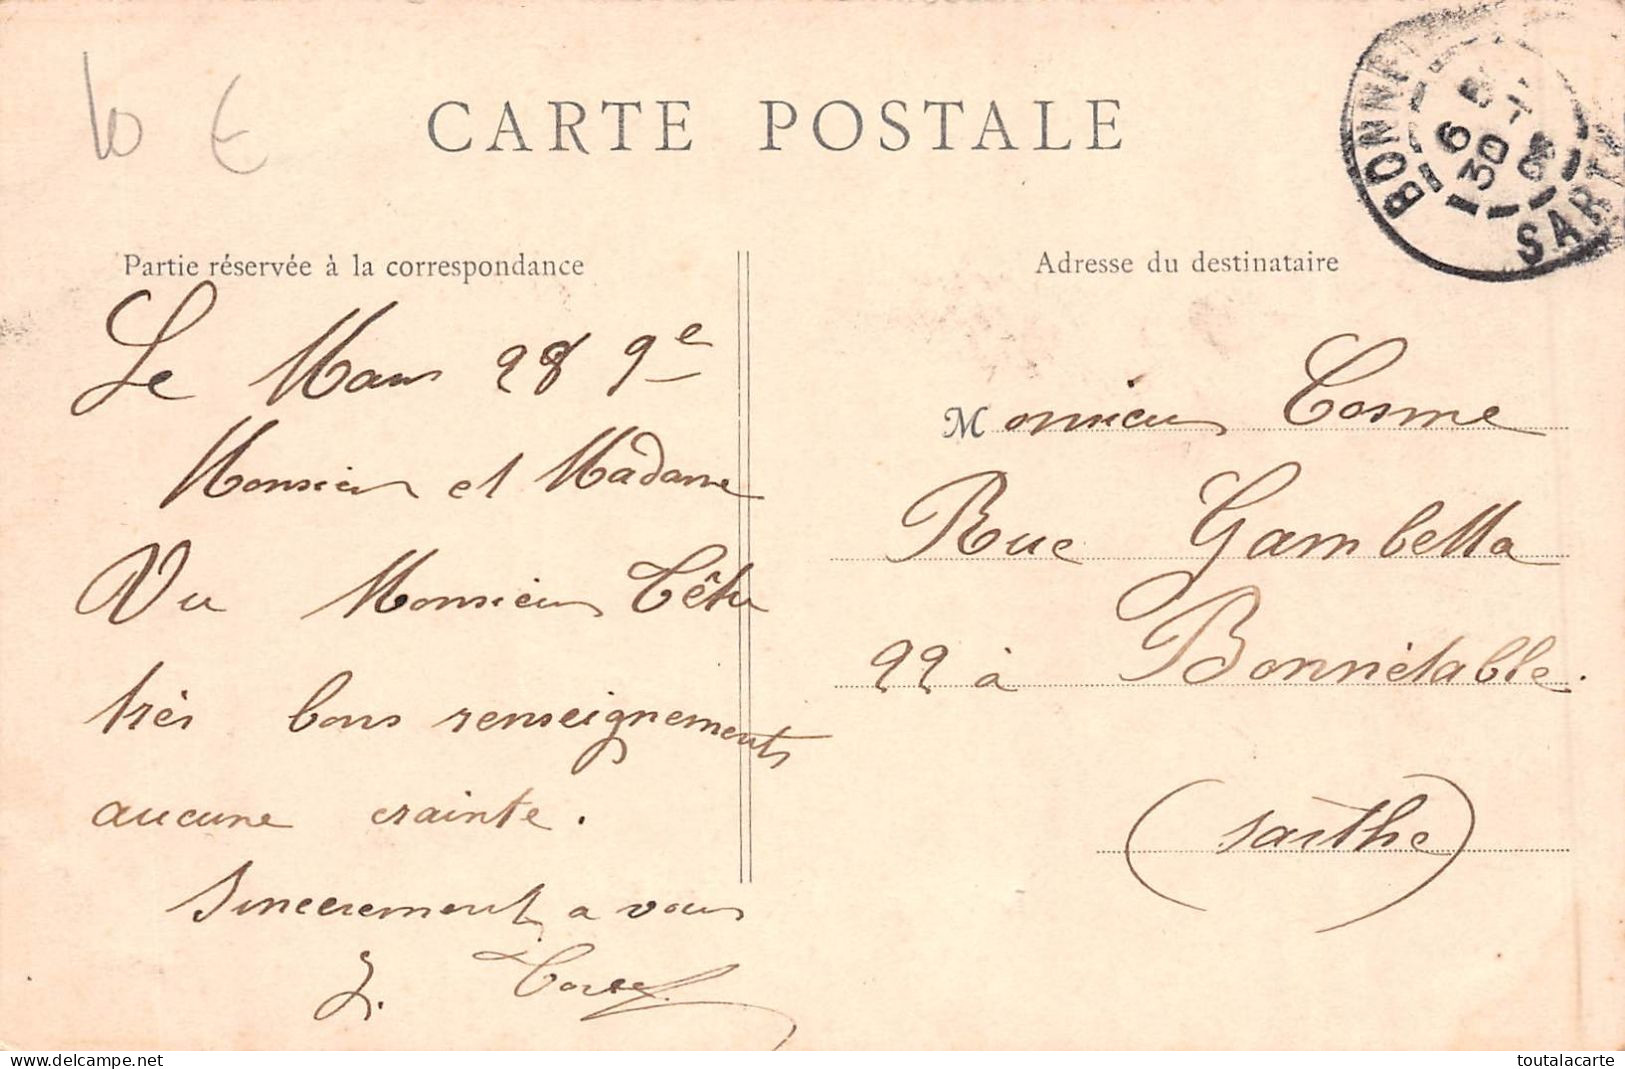 10 €
CARTE POSTALE
BONNÉ
6
30
SARTH
Partie réservée à la correspondance
Le Mans 28 9e
Monsieur et Madame
Vu Monsieur
très bons renseignements
aucune crainte.
Sincerement a vous
Adresse du destinataire
Monsieur Cosme
Rue Gambetta
22 à Bonnétable.
(Sarthe)
delcampe.net
toutalacarte